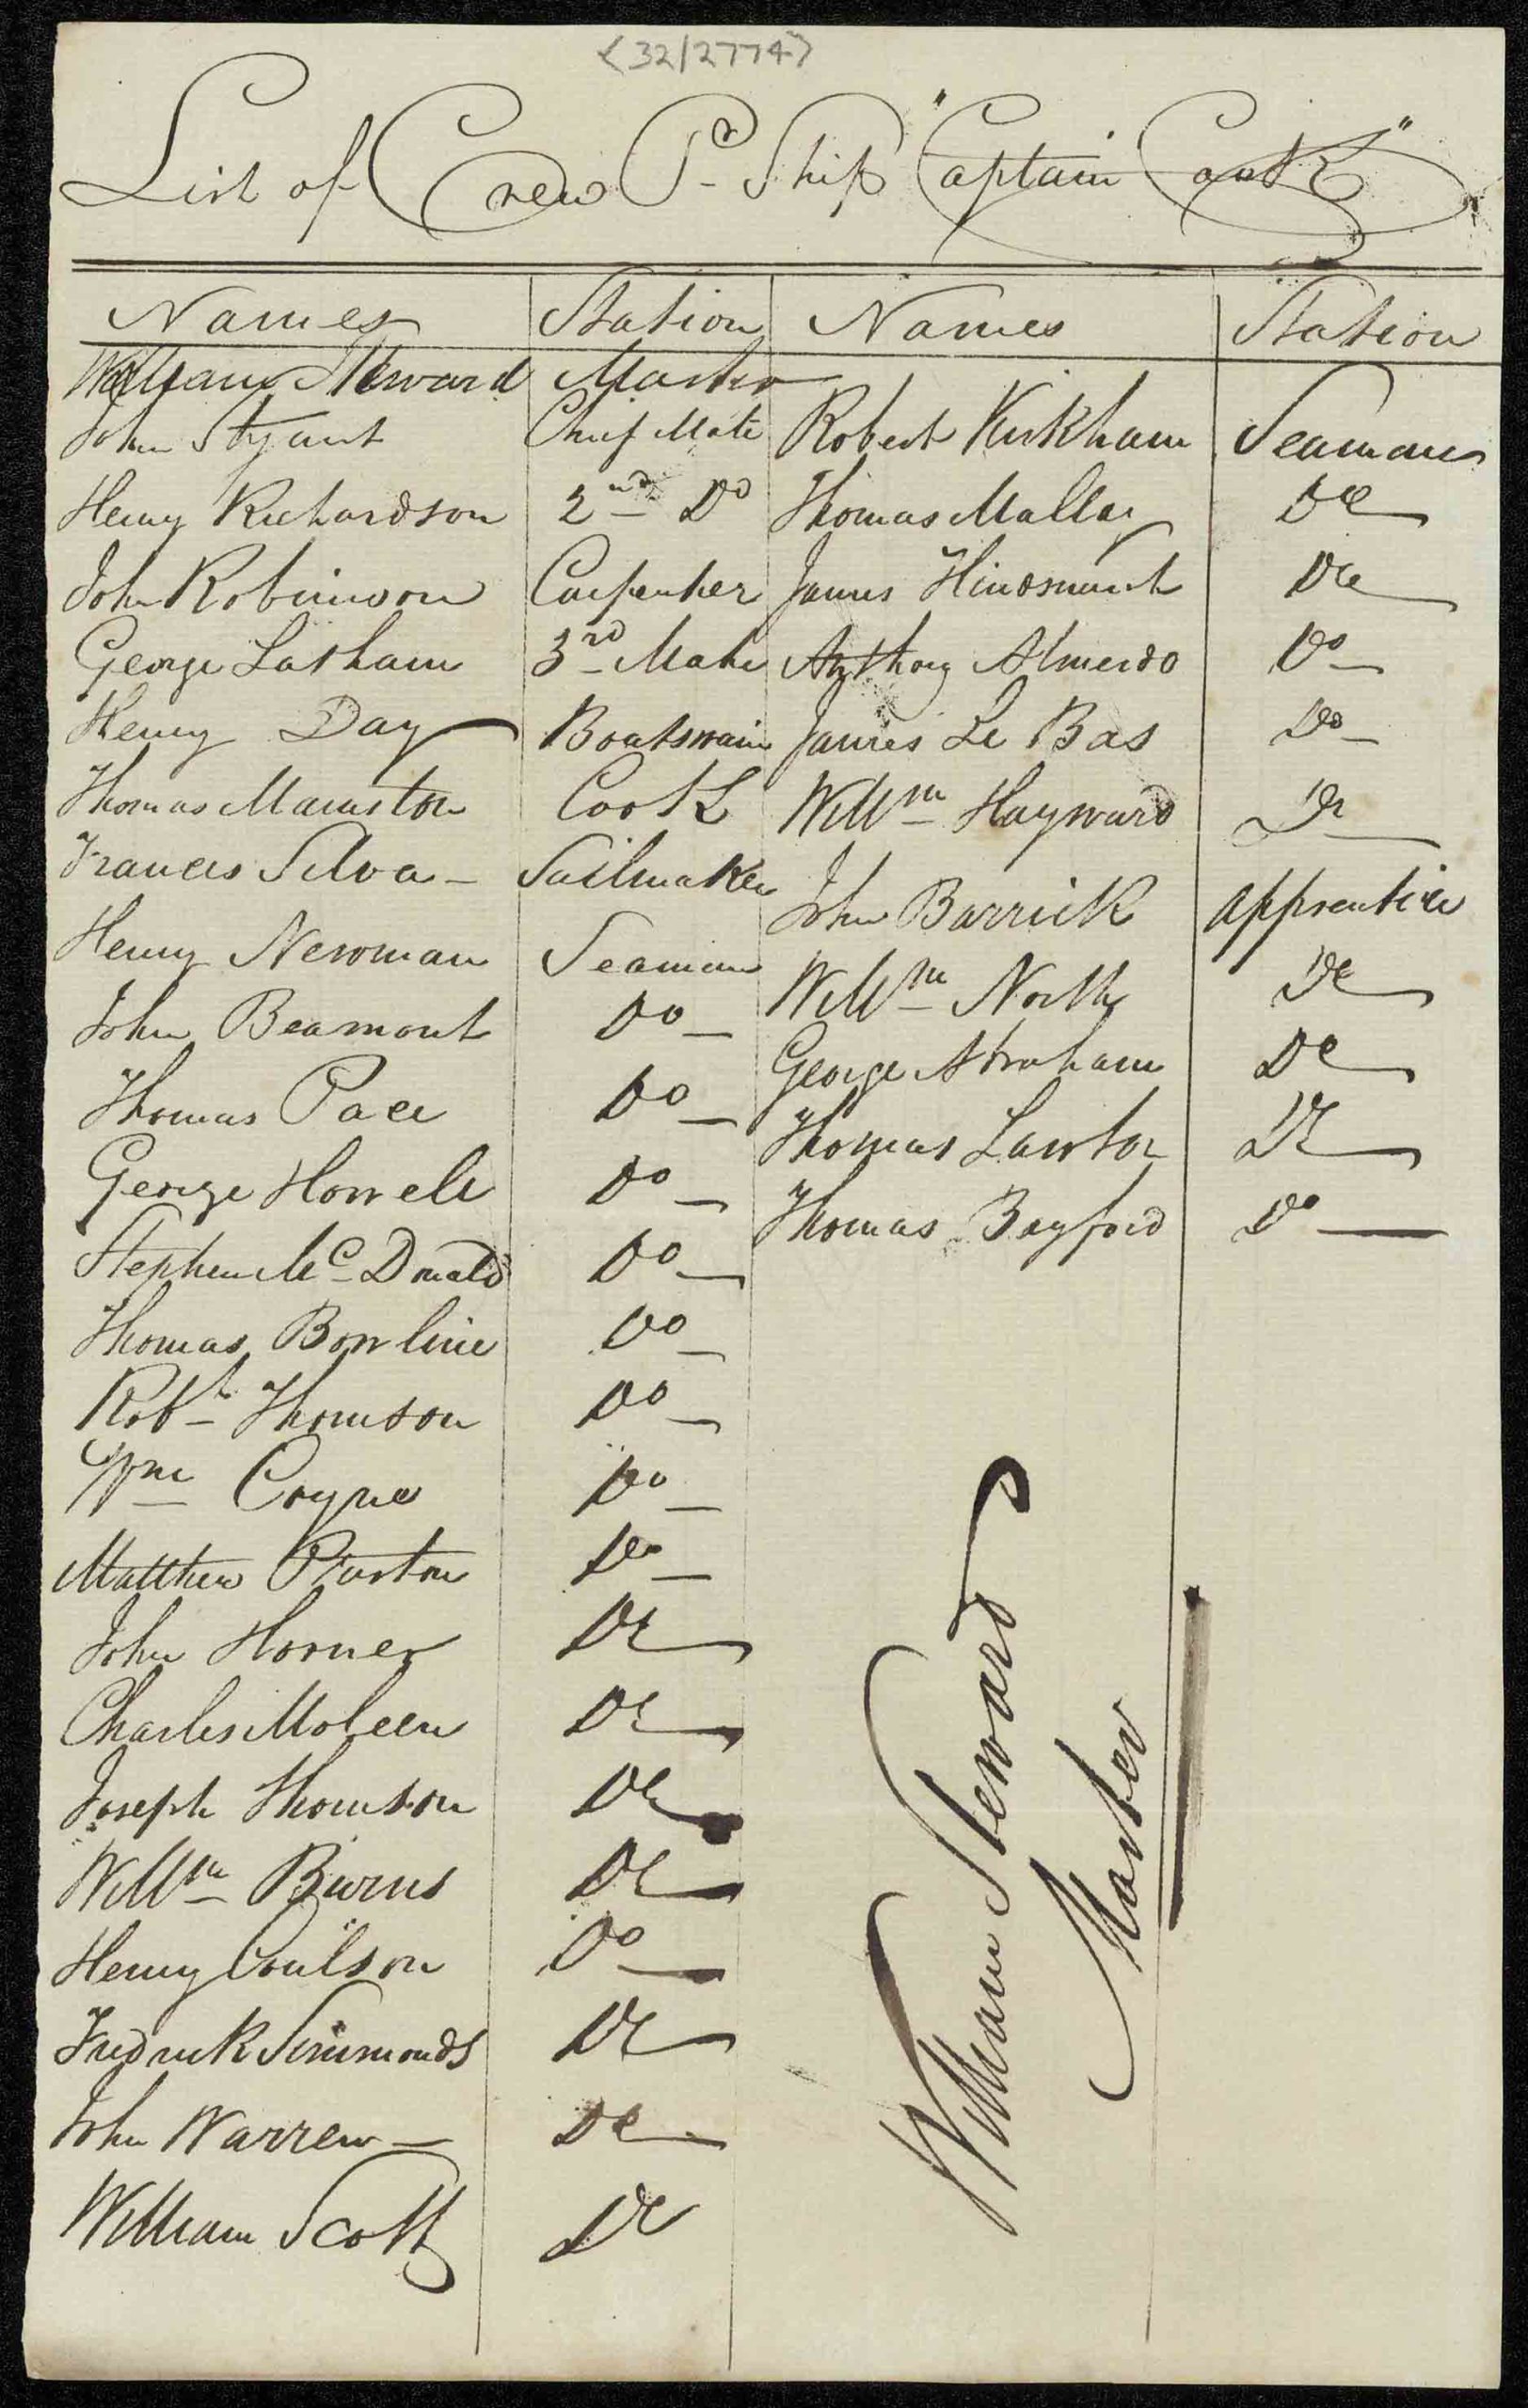 <32/2774>
List of Crew Pr Ship "Captain Cook"
Names Station Names Station
William Steward Master
John Styant Chief Mate Robert Kirkham Seaman
Henry Richardson 2nd Do Thomas Do
John Robinson Carpenter James Do
George Latham 3rd Mate Anthony Almeido Do
Henry Day Boatswain James Le Bas Do
Thomas Cook Willm Hayward Do
Francis Silva Sailmaker John Barrick apprentice
Henry Newman Seaman Willm North Do
John Beamont Do George Abraham Do
Thomas Pace Do Thomas Lawton Do
George Howell Do Thomas Bayford Do
Stephen McDonald Do
Thomas Bowline Do
Robt Thomson Do
Wm Coyne Do
Matthew Do
John Horner Do
Charles Moleen Do
Joseph Thomson Do
Willm Burns Do
Henry Coulson Do
Fredrick Simmonds Do
John Warren Do
William Scott Do
William Steward
Master